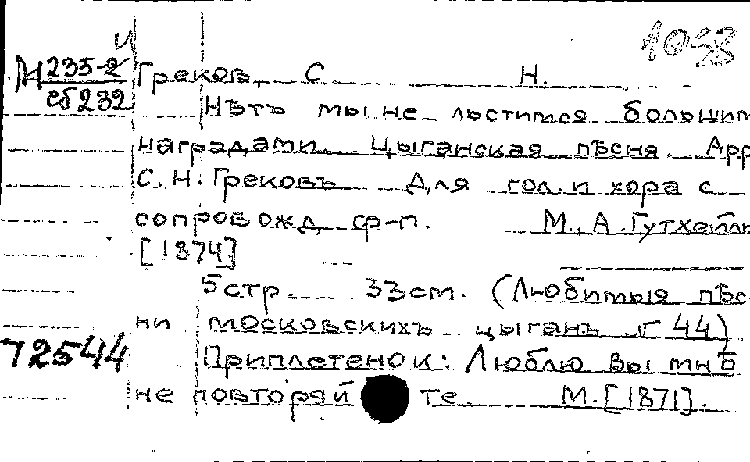 И
М 235-2
сб 232
1098
Греков, С. Н.
Нѣтъ мы не льстимся большим
наградами. Цыганская пѣсня. Арр
С.Н.Грековъ Для гол. и хора с
сопровожд ф-п. М., А.Гутхейль
[1874]
5 стр. 33 см. (Любимыя пѣс
ни московскихъ цыганъ № 44)
72544
Приплетенок: Люблю вы мнѣ
не повторяйте. М.[1871].